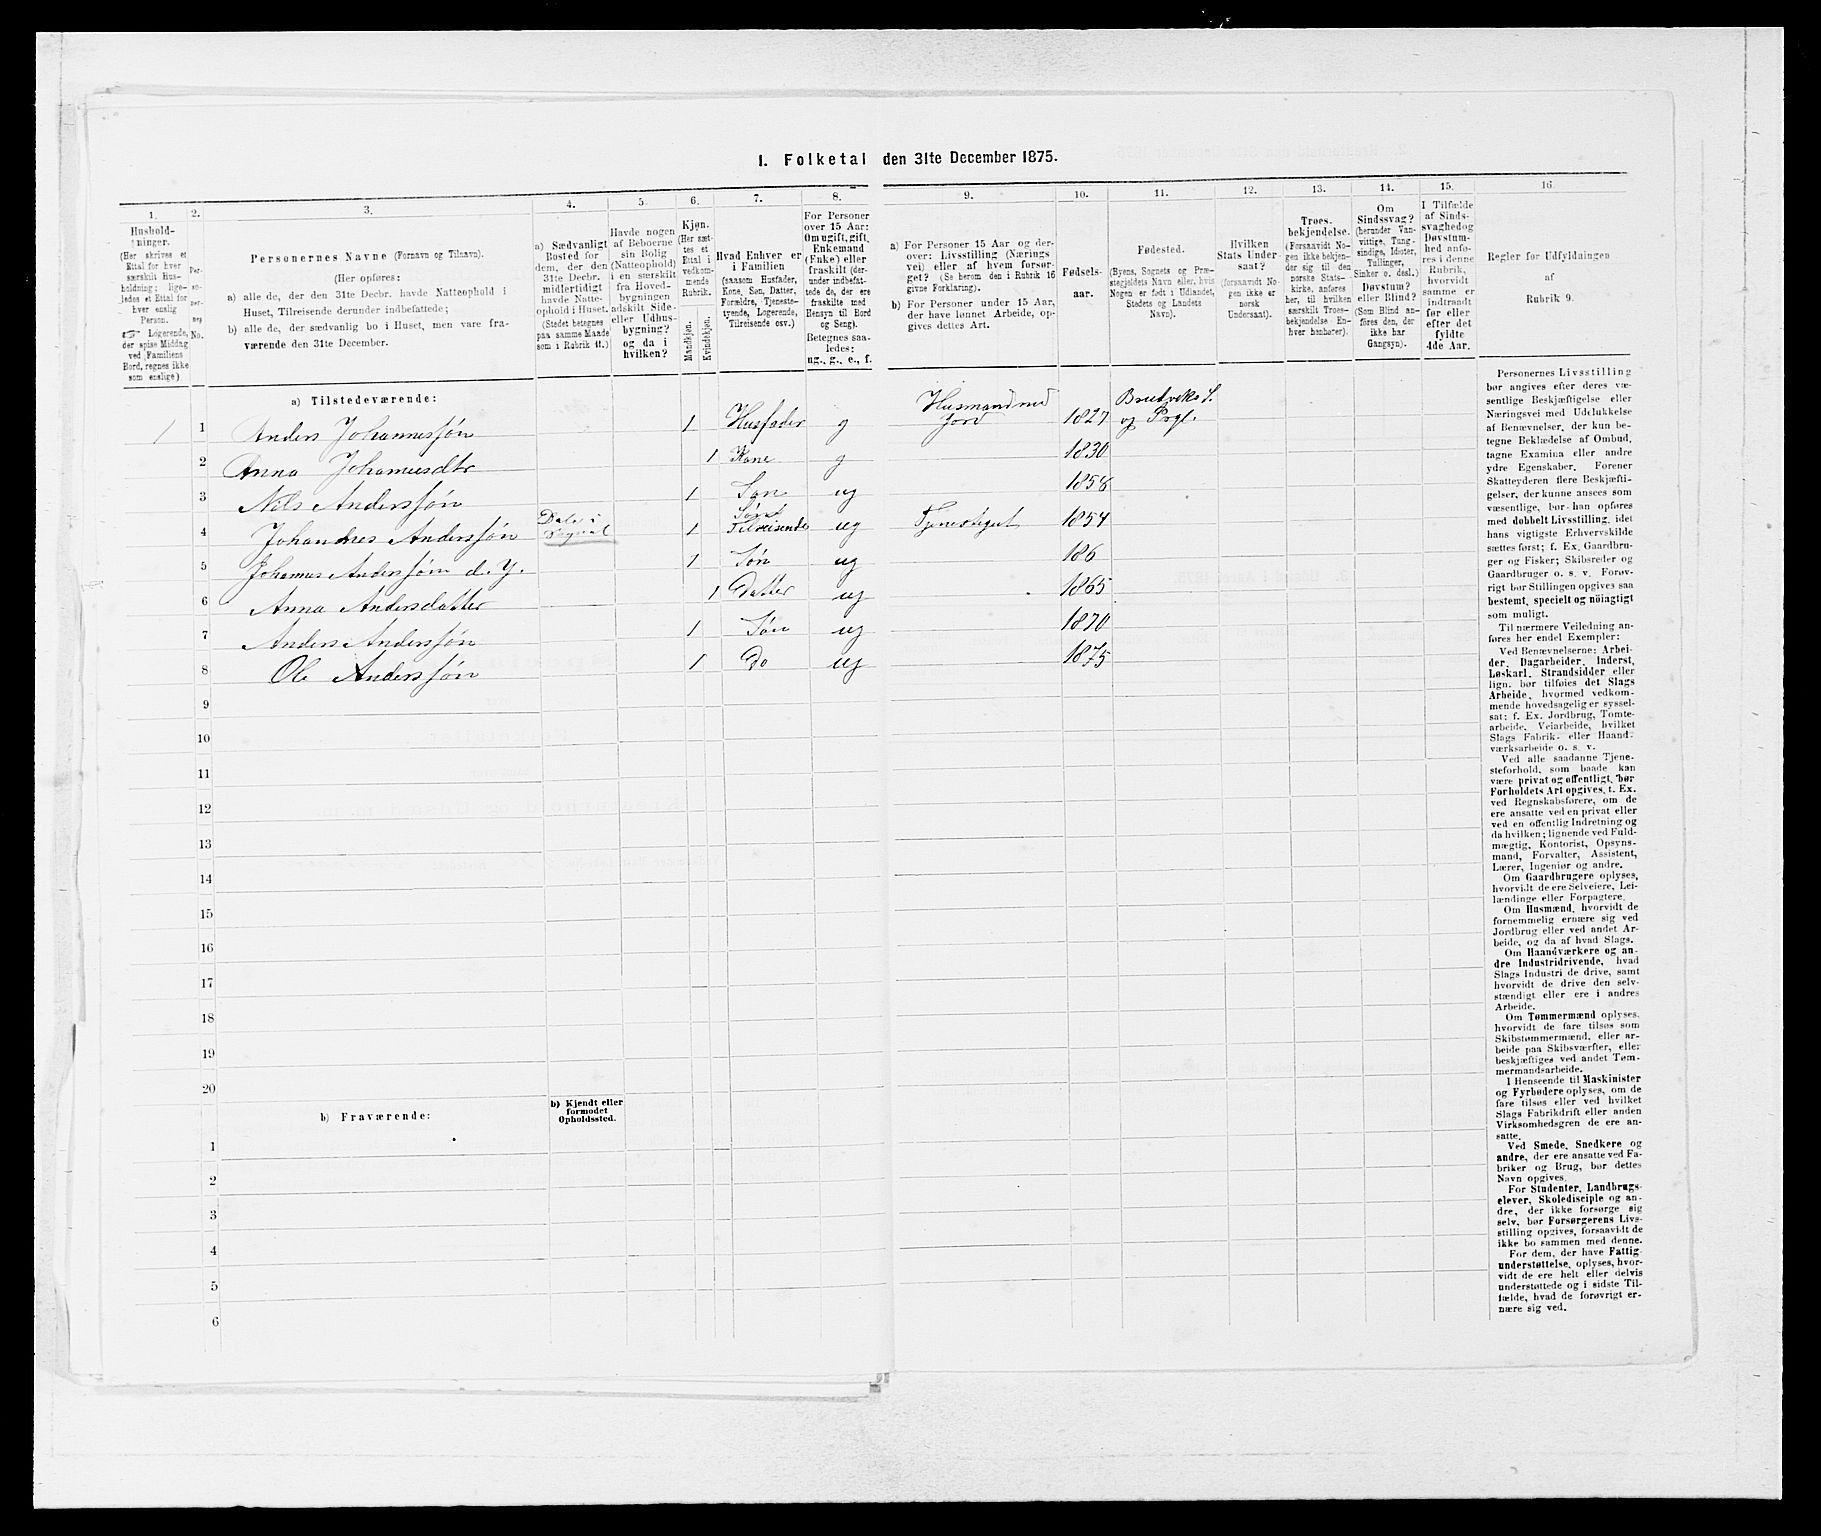 1. Folketal den 31te December 1875.
1.
2.
3.
4.
5.
6.
7.
8.
9.
10.
11.
12.
13.
14.
15.
16.
Hushold-
ninger.
(Her skrives et
Ettal for hver
særskilt Hus-
holdning; lige-
ledes et Ettal for
hver enslig
Person.
☞ Logerende,
der spise Middag
ved Familiens
Bord, regnes ikke
som enslige)
Per-
so-
per-
nes
No.
Personernes Navne (Fornavn og Tilnavn).
(Her opføres:
a) alle de, der den 31te Decbr. havde Natteophold i
Huset, Tilreisende derunder indbefattede;
b) alle de, der sædvanlig bo i Huset, men vare fra-
værende den 31te December.
a) Sædvanligt
Bosted for
dem, der den
31te Decbr.
midlertidigt
havde Natte-
ophold i Huset.
(Stedet betegnes
paa samme Maade
som i Rubrik 11.)
Havde nogen
af Beboerne
sin Bolig
(Natteophold)
i en særskilt
fra Hoved-
bygningen
adskilt Side-
eller Udhus-
bygning?
og da i
hvilken?
Kjøn.
(Her sæt-
tes et
Ettal i
vedkom-
mende
Rubrik.
Mandkjøn.
Kvindekjøn.
Hvad Enhver er
i Familien
(saasom Husfader,
Kone, Søn, Datter,
Forældre, Tjeneste-
tyende, Logerende,
Tilreisende osv.)
For Personer
over 15 Aar:
Om ugift, gift,
Enkemand
(Enke) eller
fraskilt (der-
under indbefat-
tede de, der ere
fraskilte med
Hensyn til Bord
og Seng).
Betegnes saa-
ledes:
ug., g., e., f.
a) For Personer 15 Aar og der-
over: Livsstilling (Nærings
vei) eller af hvem forsør-
get? (Se herom den i Rubrik 16
givne Forklaring).
b) For Personer under 15 Aar,
der have lønnet Arbeide, op-
gives dettes Art.
Fødsels-
aar.
Fødested.
(Byens, Sognets og Præ-
stegjeldets Navn eller, hvis
Nogen er født i Udlandet,
Stedets og Landets
Navn).
Hvilken
Stats Under-
saat?
(forsaavidt No-
gen ikke er
norsk
Undersaat).
Troes-
bekjendelse.
(Forsaavidt No-
gen ikke bekjen-
der sig til den
norske Stats-
kirke, anføres
her, til hvilken
særskilt Troes-
bekjendelse En-
hver henhører).
Om
Sindssvag?
(herunder Van-
vittige, Tung-
sindige, Idioter,
Tullinger,
Sinker o. desl.)
Døvstum?
eller Blind?
(Som Blind an-
føres den, der
ikke har
Gangsyn).
I Tilfælde
af Sinds-
svaghed og
Døvstum-
hed anfø-
res i denne
Rubrik,
hvorvidt
samme er
indtraadt
før eller
efter det
fyldte
4de Aar.
Regler for Udfyldningen
af
Rubrik 9.
a) Tilstedeværende:
1 1 Anders Johannessøn 1 Husfader g Husmand med Jord 1827 Brudviks S. og Prgl.
2 Anna Johannesdtr 1 Kone g 1830
3 Nils Anderssøn 1 Søn ug 1858
4 Johannes Anderssøn Dale i 1 Søn Tilreisende ug Tjenestegut 1854
5 Johannes Anderssøn d. y. 1 Søn ug 186
6 Anna Andersdatter 1 Datter ug 1865
7 Anders Anderssøn 1 Søn ug 1870
8 Ole Anderssøn 1 Do ug 1875
9
10
11
12
13
14
15
16
17
18
19
20
b) Fraværende:
b) Kjendt eller
formodet
Opholdssted.
1
2
3
4
5
6
Personernes Livsstilling
bør angives efter deres væ-
sentlige Beskjæftigelse eller
Næringsvei med Udelukkelse
af Benævnelser, der kun be-
tegne Beklædelse af Ombud,
tagne Examina eller andre
ydre Egenskaber. Forener
Skatteyderen flere Beskjæfti-
gelser, der kunne ansees som
væsentlige, bør han opføres
med dobbelt Livsstilling, idet
hans vigtigste Erhvervskilde
sættes først; f. Ex. Gaardbru-
ger og Fisker; Skibsreder og
Gaardbruger o. s. v. Forøv-
rigt bør Stillingen opgives saa
bestemt, specielt og nøiagtigt
som muligt.
Til nærmere Veiledning an-
føres her endel Exempler:
Ved Benævnelserne: Arbei-
der, Dagarbeider, Inderst,
Løskarl, Strandsidder eller
lign. bør tilføies det Slags
Arbeide, hvormed vedkom-
mende hovedsagelig er syssel-
sat; f. Ex. Jordbrug, Tomte-
arbeide, Veiarbeide, hvilket
Slags Fabrik- eller Haand-
værksarbeide o. s. v.
Ved alle saadanne Tjene-
steforhold, som baade kan
være privat og offentligt, bør
Forholdets Art opgives, t. Ex.
ved Regnskabsførere, om de
ere ansatte ved en privat eller
ved en offentlig Indretning og
da hvilken; lignende ved Fuld-
mægtig, Kontorist, Opsyns-
mand, Forvalter, Assistent,
Lærer, Ingeniør og andre.
Om Gaardbrugere oplyses,
hvorvidt de ere Selveiere, Lei-
lændinge eller Forpagtere.
Om Husmænd, hvorvidt de
fornemmelig ernære sig ved
Jordbrug eller ved andet Ar-
beide, og da af hvad Slags.
Om Haandværkere og an-
dre Industridrivende, hvad
Slags Industri de drive, samt
hvorvidt de drive den selv-
stændigt eller ere i andres
Arbeide.
Om Tømmermænd oplyses,
hvorvidt de fare tilsøs som
Skibstømmermænd, eller ar-
beide paa Skibsværfter, eller
beskjæftiges ved andet Tøm-
mermandsarbeide.
I Henseende til Maskinister
og Fyrbødere oplyses, om de
fare tilsøs eller ved hvilket
Slags Fabrikdrift eller anden
Virksomhedsgren de ere an-
satte.
Ved Smede, Snedkere og
andre, der ere ansatte ved Fa-
briker og Brug, bør dettes
Navn opgives.
For Studenter, Landbrugs-
elever, Skoledisciple og an-
dre, der ikke forsørge sig
selv, bør Forsørgerens Livs-
stilling opgives, forsaavidt de
ikke bo sammen med denne.
For dem, der have Fattig-
understøttelse, oplyses, hvor-
vidt de ere helt eller delvis
understøttede og i sidste Til-
fælde, hvad de forøvrigt er-
nære sig ved.